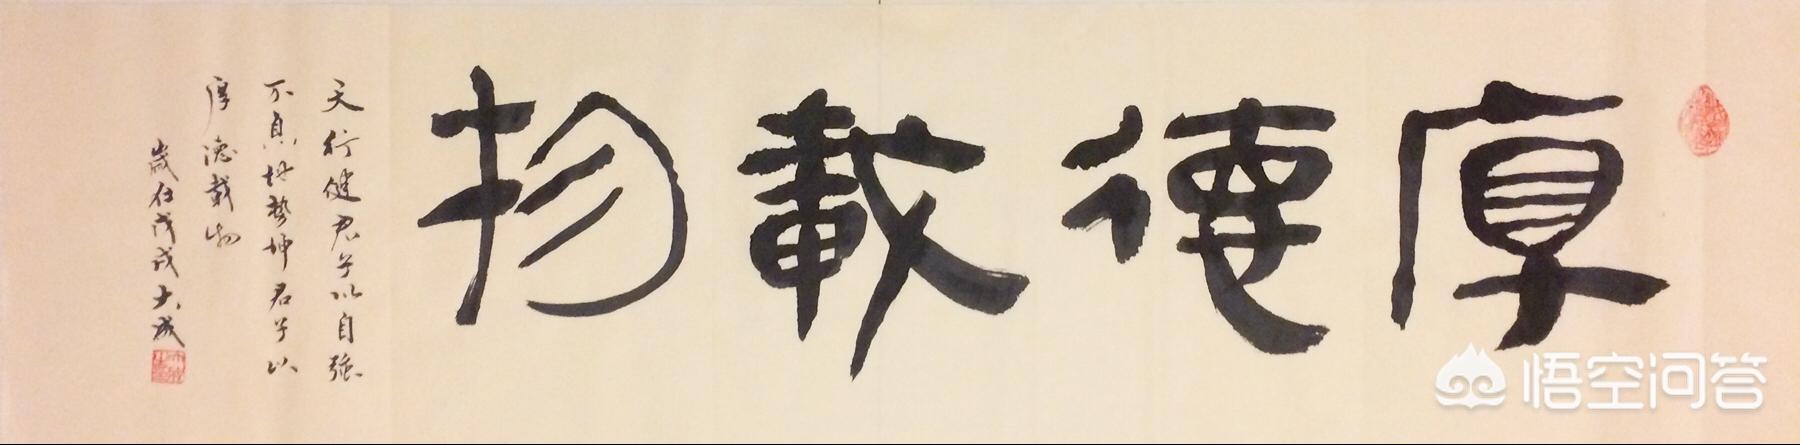 厚德載物
天行健君子以自強
不息地勢坤君子以
厚德載物
歲在戊戌大成
悟空问答